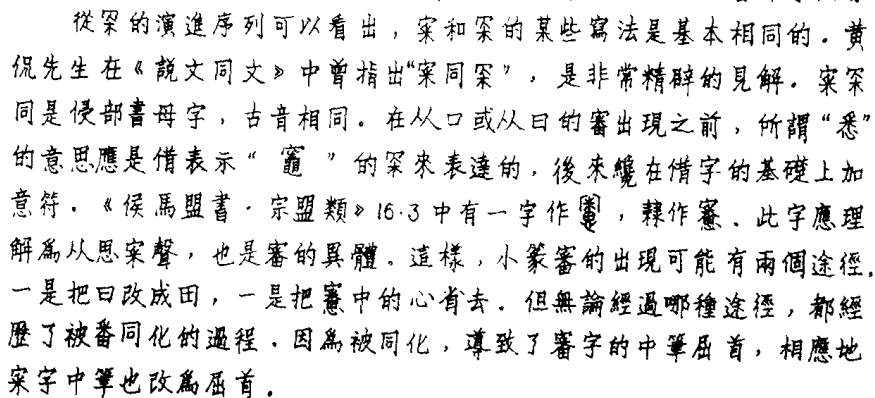 從罙的演進序列可以看出，寀和罙的某些寫法是基本相同的．黄
侃先生在《説文同文》中曾指出“寀同罙”，是非常精辟的見解．寀罙
同是侵部書母字，古音相同．在从口或从曰的審出現之前，所謂“悉”
的意思應是借表示“竈”的罙來表達的，後來纔在借字的基礎上加
意符．《侯馬盟書·宗盟類》16·3中有一字作，隸作．此字應理
解爲从思寀聲，也是審的異體．這樣，小篆審的出現可能有兩個途徑．
一是把曰改成田，一是把中的心省去．但無論經過哪種途徑，都經
歷了被番同化的過程．因爲被同化，導致了審字的中筆屈首，相應地
寀字中筆也改爲屈首．